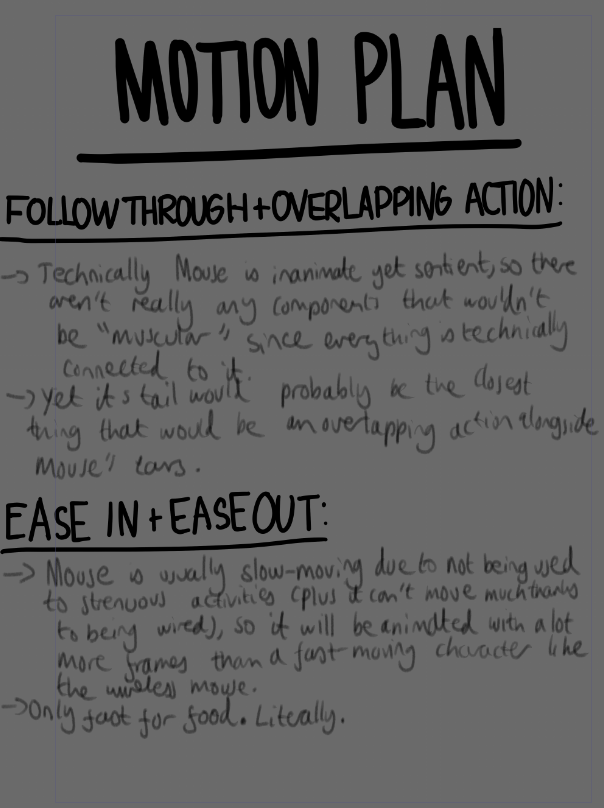 MOTION PLAN
FOLLOW THROUGH + OVERLAPPING ACTION:
→ Technically Mouse is inanimate yet sentient, so there
aren't really any components that wouldn't
be "muscular" since everything is technically
connected to it.
→ Yet it's tail would probably be the closest
thing that would be an overlapping action alongside
Mouse's ears.
EASE IN + EASE OUT:
→ Mouse is usually slow-moving due to not being used
to strenuous activities (plus it can't move much thanks
to being wired), so it will be animated with a lot
more frames than a fast-moving character like
the wireless mouse.
→ Only fast for food. Literally.